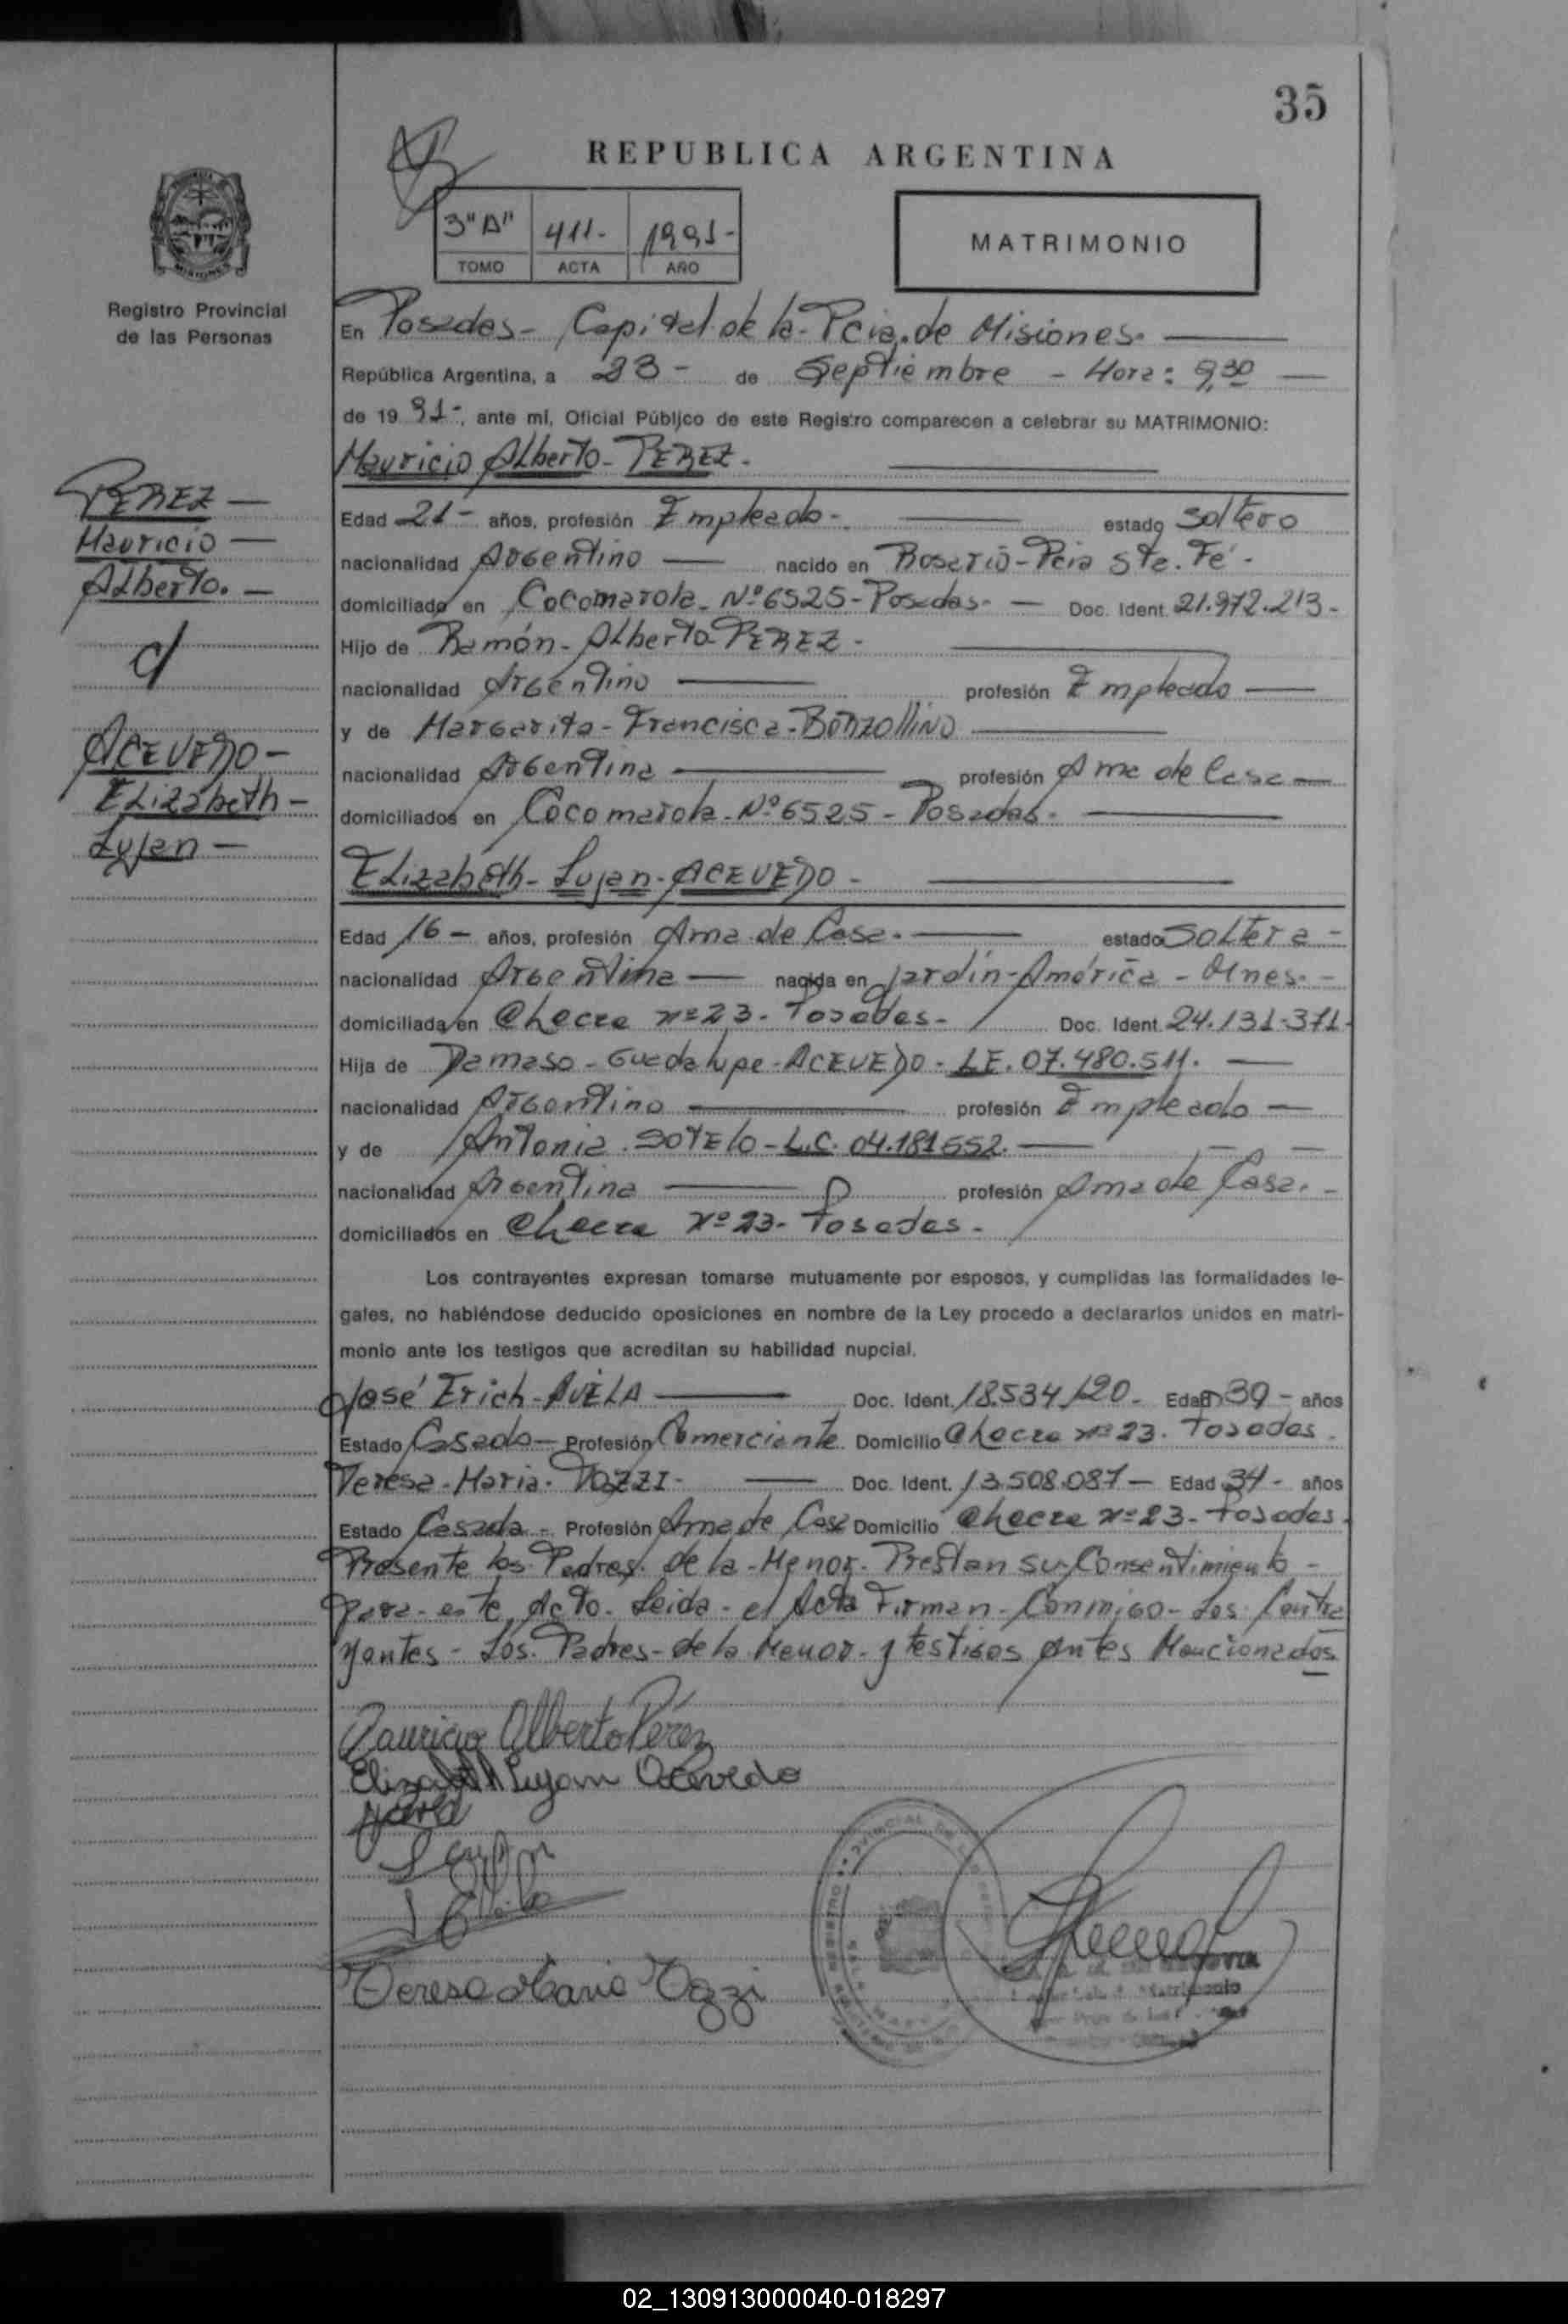 35
REPUBLICA ARGENTINA
3"A" 411- 1991-
TOMO ACTA AÑO
MATRIMONIO
Registro Provincial
de las Personas
En Posadas- Capital de la- Pcia. de Misiones-
República Argentina, a 23- de Septiembre - Hora: 9,30
de 19 91-, ante mí, Oficial Público de este Registro comparecen a celebrar su MATRIMONIO:
Mauricio Alberto- PEREZ-
PEREZ-
Mauricio-
Alberto.-
c/
ACEVEDO-
Elizabeth-
Lujan-
Edad 21- años, profesión Empleado- estado Soltero
nacionalidad Argentino nacido en Rosario- Pcia Sta. Fé-
domiciliado en Cocomarola- Nº 6525- Posadas- Doc. Ident. 21.972.213-
Hijo de Ramón- Alberto- PEREZ-
nacionalidad Argentino profesión Empleado
y de Margarita- Francisca-
nacionalidad Argentina profesión Ama de Casa
domiciliados en Cocomarola- Nº 6525- Posadas-
Elizabeth- Lujan- ACEVEDO-
Edad 16- años, profesión Ama de Casa- estado Soltera-
nacionalidad Argentina nacida en Jardín- América- Mnes-
domiciliada en Chacra nº 23- Posadas- Doc. Ident. 24.131.371-
Hija de Damaso- Guadalupe- ACEVEDO- LE. 07.480.511.
nacionalidad Argentino profesión Empleado
y de Antonia- SOTELO- L.C. 04.181552.
nacionalidad Argentina profesión Ama de Casa.-
domiciliados en Chacra Nº 23- Posadas-
Los contrayentes expresan tomarse mutuamente por esposos, y cumplidas las formalidades le-
gales, no habiéndose deducido oposiciones en nombre de la Ley procedo a declararlos unidos en matri-
monio ante los testigos que acreditan su habilidad nupcial.
José Erich- AVELA Doc. Ident. 18.534.120- Edad 39- años
Estado Casado- Profesión Comerciante Domicilio Chacra nº 23- Posadas-
Teresa- Maria- TOZZI- Doc. Ident. 13.508.087- Edad 34- años
Estado Casada- Profesión Ama de Casa Domicilio Chacra nº 23- Posadas-
Presente los- Padres- de la- Menor- Prestan su Consentimiento-
para- este Acto- Leida- el Acta Firman- Conmigo- Los- Contra
yentes- Los- Padres- de la Menor- y testigos antes Mencionados
Mauricio Alberto Pérez
Elizabeth Lujan Acevedo
Teresa Maria Tozzi
02_130913000040-018297